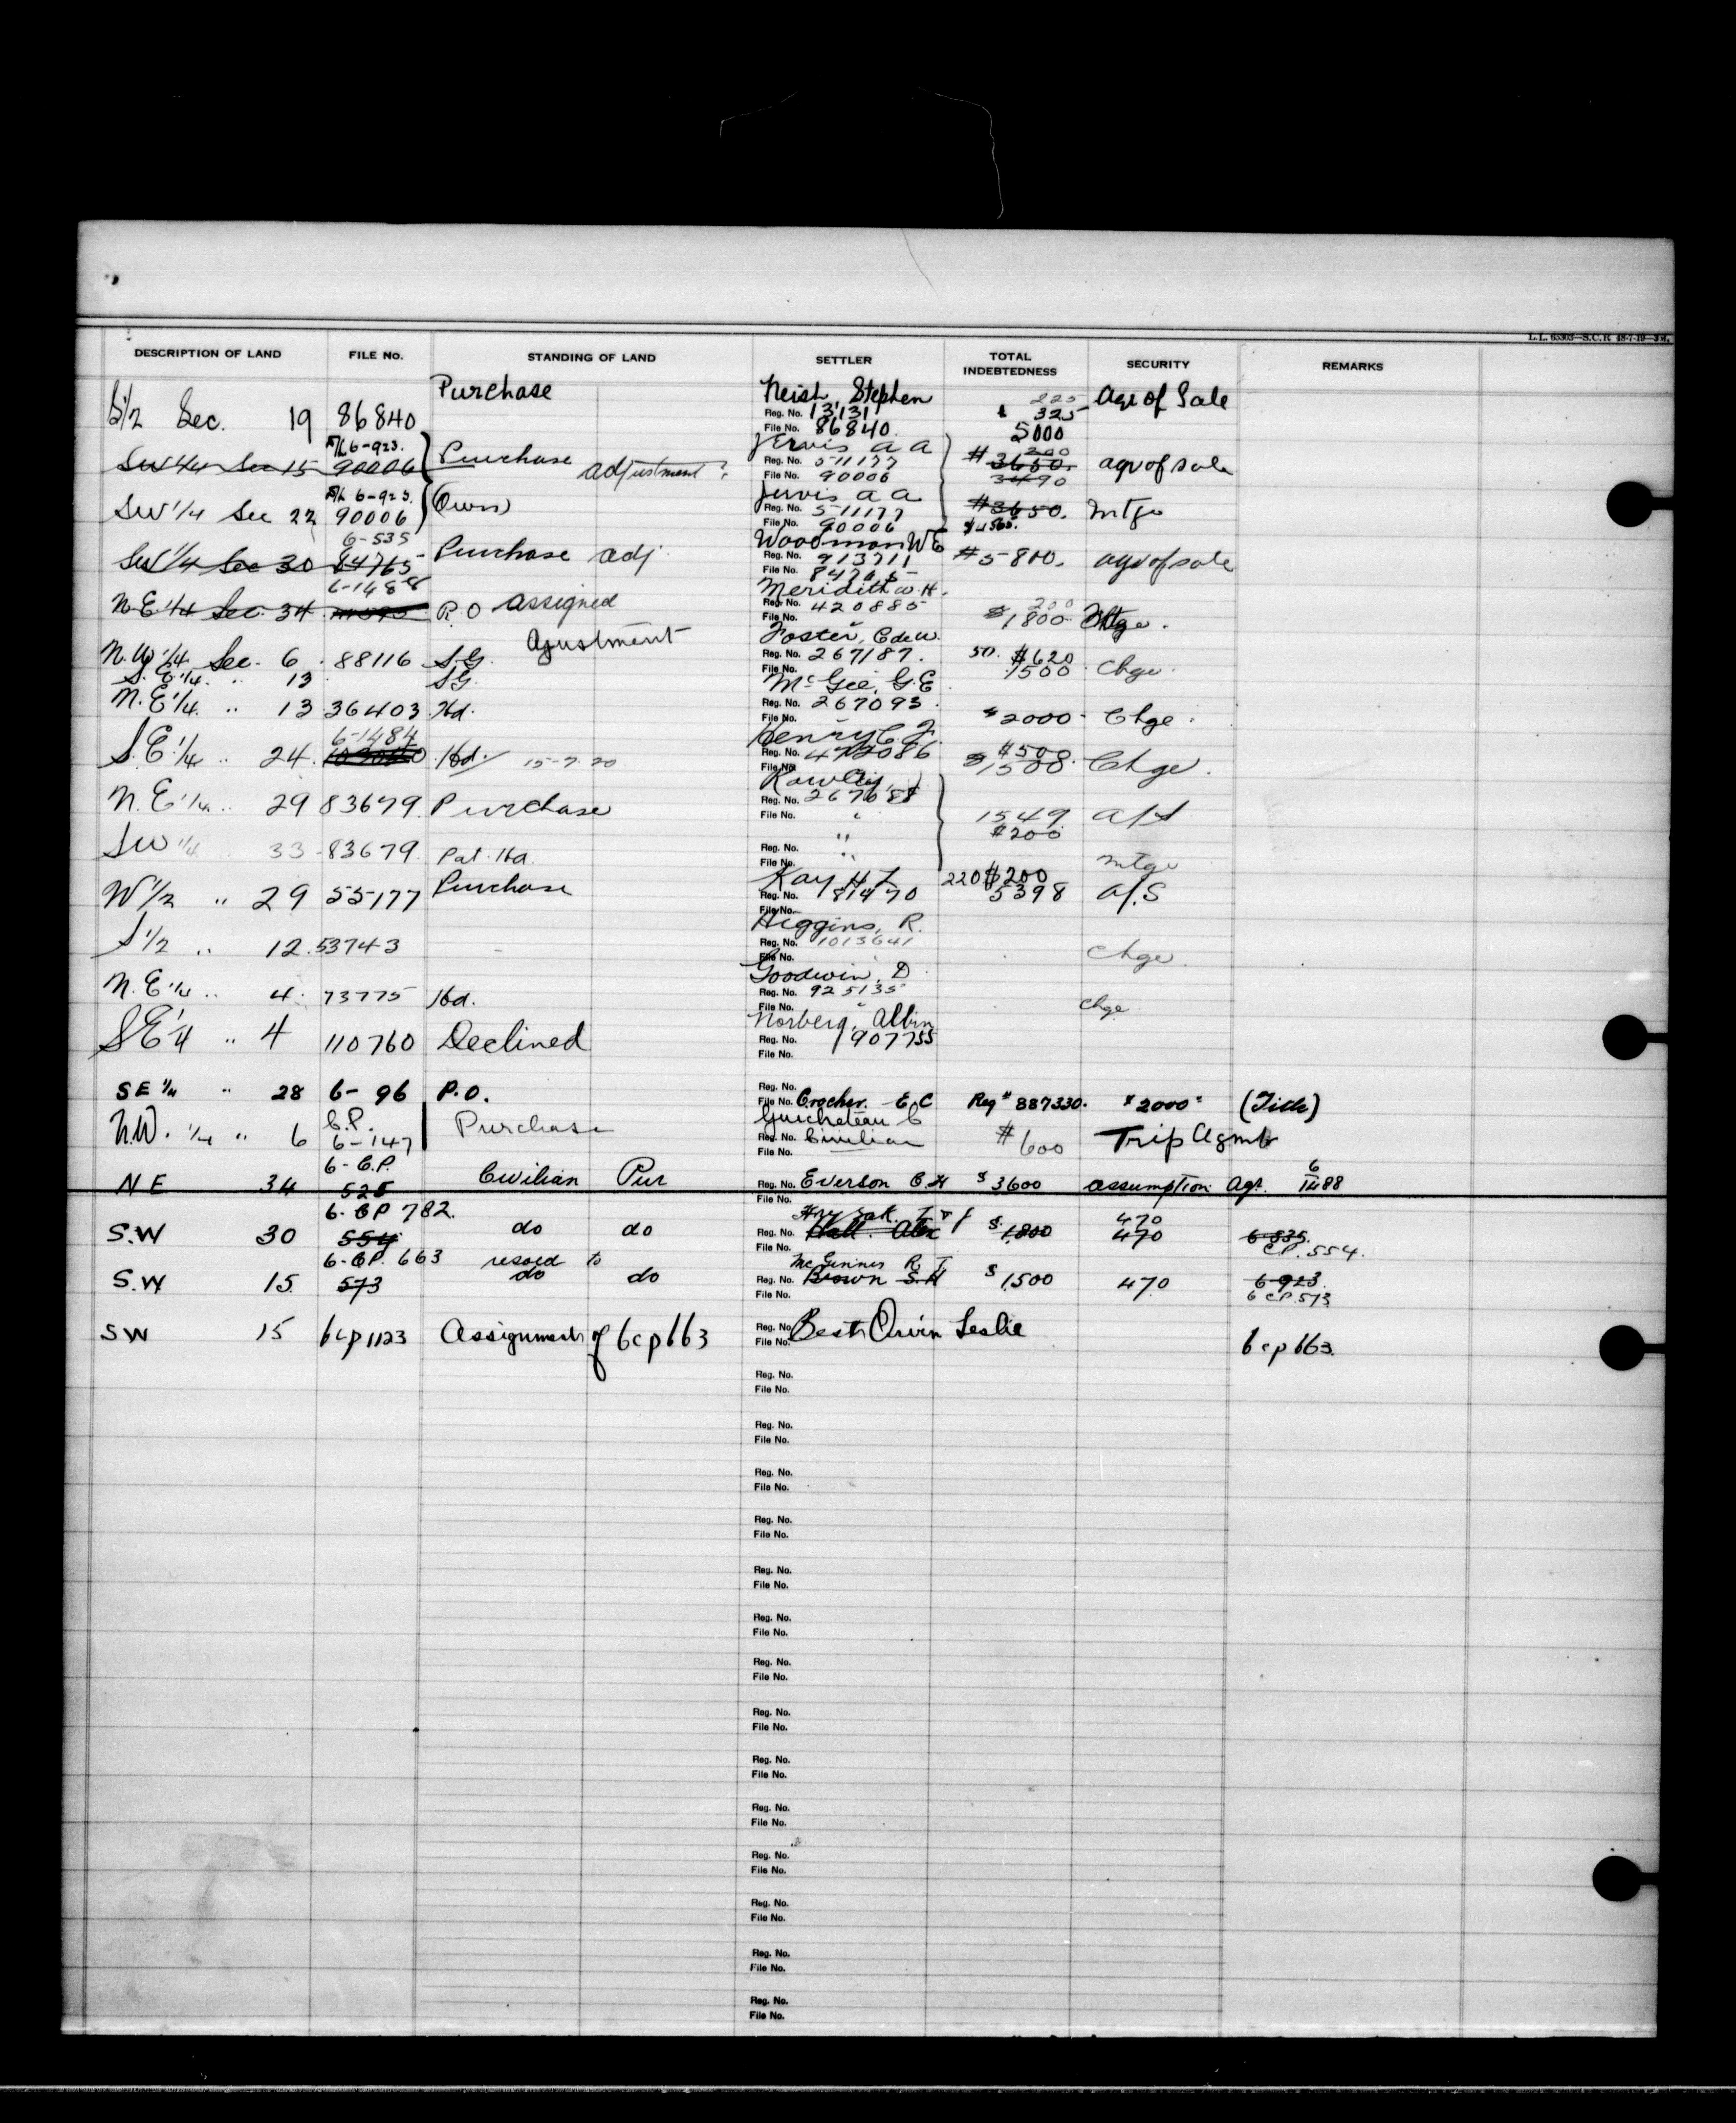 L.L. 65305—S.C.R. 48-7-19—3M.
DESCRIPTION OF LAND FILE NO. STANDING OF LAND SETTLER TOTAL INDEBTEDNESS SECURITY REMARKS
Purchase Neish, Stephen 225 Agr of Sale
S1/2 Sec. 19 86840 Reg. No. 13131 $ 325
File No. 86840. 5000
6-923. Jervis A A 200
SW 1/4 Sec 15 90006 Purchase adjustment? Reg. No. 511177 #3650. agr of sale
File No. 90006 3490
6-923. Jervis A A
SW 1/4 Sec 22 90006 (Own) Reg. No. 511177 #3650. Mtge
File No. 90006 $4565.
6-535 Woodman W E
SW 1/4 Sec 30 84765 Purchase adj. Reg. No. 913711 #5800. agr of sale
File No. 84765
6-1488 Meridith W. H.
N.E. 1/4 Sec. 34 P.O assigned Reg. No. 420885 200
File No. $1800. Mtge.
Ajustment Foster, C de W.
N.W. 1/4 Sec. 6 88116 S.G. Reg. No. 267187. 50. $620
S.E. 1/4. " 13 S.G. File No. 1500 Chge.
McGee, G. E
N.E. 1/4. " 13 36403 Hd. Reg. No. 267093.
File No. $2000. Chge.
6-1484 Henry C. J.
S.E. 1/4 " 24. Hd. 15-7-20 Reg. No. 472086 #508.
File No. $1500 Chge.
Rowley
N.E. 1/4 " 29 83679. Purchase Reg. No. 267088
File No. " 1549 A/S
" #200
SW 1/4 33 83679 Pat. Hd. Reg. No.
File No. " mtge
Kay H L 220 $200
W 1/2 " 29 55177 Purchase Reg. No. 81470 5398 A/.S
File No.
Higgins, R.
S 1/2 " 12. 53743 - Reg. No. 1013641
File No. Chge.
Goodwin, D.
N.E 1/4 " 4. 73775 Hd. Reg. No. 925135
File No. " chge.
Norberg, Albin
SE 1/4 " 4 110760 Declined Reg. No. 1907755
File No.
SE 1/4 " 28 6- 96 P.O. Reg. No.
File No. Crocker. E C Reg # 887330. $2000 (Title)
C.P. Guicheteau C
N.W. 1/4 " 6 6-147 Purchase Reg. No. Civilian # 600 Trip Agmt
File No.
6- C.P.
NE 34 525 Civilian Pur Reg. No. Everson C H $3600 assumption Agt. 6/1488
File No.
6- CP 782.
S.W 30 554 do do Reg. No. Hall. Alex $1,800 470 470 6-535
File No. C.P. 554.
6- CP. 663 resold to McGinnis R. J.
S.W 15. 573 do do Reg. No. Brown S. H $1,500 470 6-923
File No. 6 CP. 573
SW 15 6cp1123 Assignment of 6cp663 Reg. No. Best Orvin Leslie
File No. 6cp663.
Reg. No.
File No.
Reg. No.
File No.
Reg. No.
File No.
Reg. No.
File No.
Reg. No.
File No.
Reg. No.
File No.
Reg. No.
File No.
Reg. No.
File No.
Reg. No.
File No.
Reg. No.
File No.
Reg. No.
File No.
Reg. No.
File No.
Reg. No.
File No.
Reg. No.
File No.